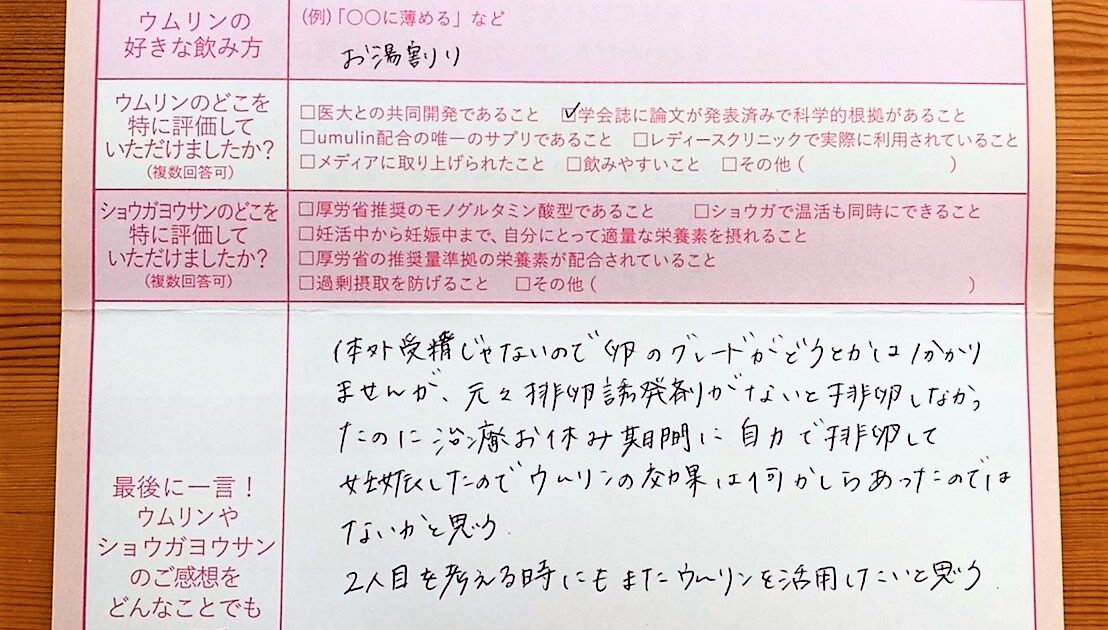 ウムリンの
好きな飲み方
(例)「〇〇に薄める」など
お湯割り
ウムリンのどこを
特に評価して
いただけましたか?
(複数回答可)
□医大との共同開発であること ☑学会誌に論文が発表済みで科学的根拠があること
□umulin配合の唯一のサプリであること □レディースクリニックで実際に利用されていること
□メディアに取り上げられたこと □飲みやすいこと □その他( )
ショウガヨウサンのどこを
特に評価して
いただけましたか?
(複数回答可)
□厚労省推奨のモノグルタミン酸型であること □ショウガで温活も同時にできること
□妊活中から妊娠中まで、自分にとって適量な栄養素を摂れること
□厚労省の推奨量準拠の栄養素が配合されていること
□過剰摂取を防げること □その他( )
最後に一言!
ウムリンや
ショウガヨウサン
のご感想を
どんなことでも
体外受精じゃないので卵のグレードがどうとかは分かり
ませんが、元々排卵誘発剤がないと排卵しなかっ
たのに治療お休み期間に自力で排卵して
妊娠したのでウムリンの効果は何かしらあったのでは
ないかと思う
2人目を考える時にもまたウムリンを活用したいと思う